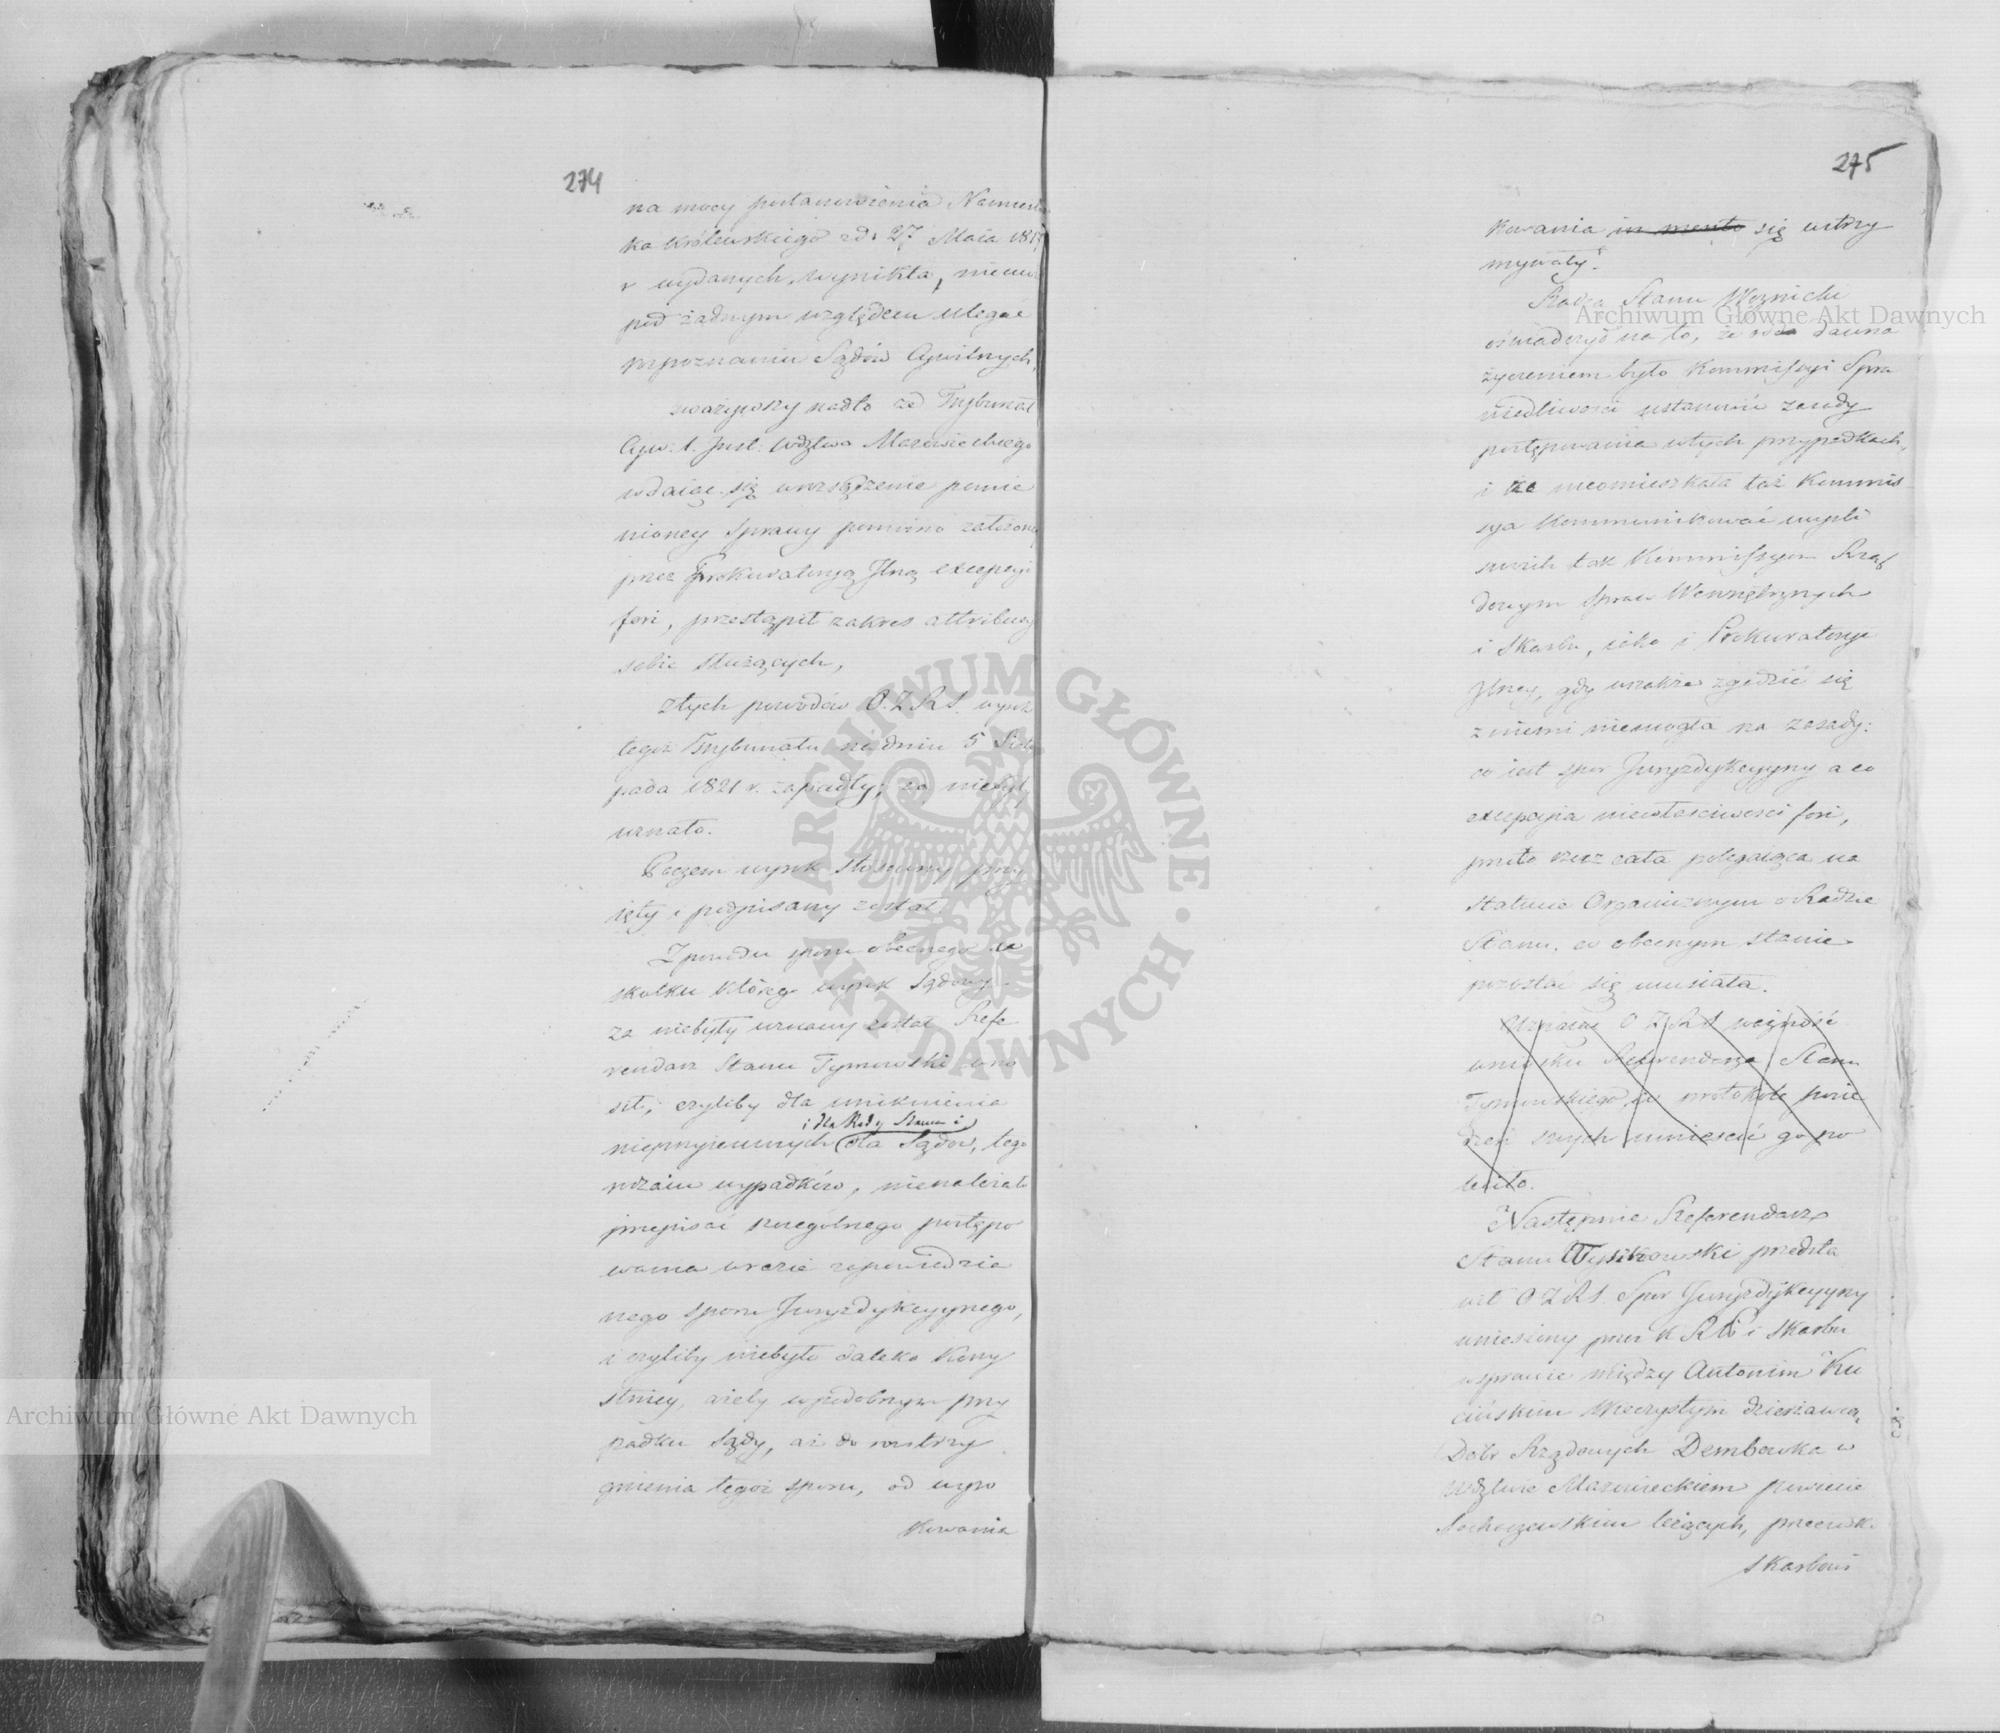 274
na mocy postanowienia Namiestni
ka Królewskiego z d. 27 Maia 1817
r wydanych, wynikła, nie
pod żadnym względem ulegać
rozpoznaniu Sądów Cywilnych,
zważywszy nadto że Trybunał
Cyw. 1. Inst. Wdztwa Mazowieckiego
wdaiąc się w rozsądzenie pomie
nioney Sprawy pomimo założoney
przez Prokuratoryą Jlną excepcyi
fori, przestąpił zakres attribucyi
sobie służących,
Z tych powodów O. Z. R. S. wyrok
tegoż Trybunału na dniu 5 Listo
pada 1821 r. zapadły, za niebyły
uznało.
Poczem wyrok stosowny przy
ięty i podpisany został.
Z powodu sporu obecnego w
skutku którego wyrok Sądowy
za niebyły uznany został Refe
rendarz Stanu Tymowski wno
sił, czyliby dla uniknienia
i dla Rady Stanu i
nieprzyiemnych dla Sądów, tego
rodzaiu wypadków, nienależało
przepisać szczególnego postępo
wania w razie zapowiedzia
nego sporu Juryzdykcyynego,
i czyliby niebyło daleko korzy
stniey, ażeby w podobnym przy
padku Sądy, aż do rozstrzy
gnienia tegoż sporu, od wyro
kowania
275
kowania in merito się wstrzy
mywały.
Radca Stanu Woźnicki
oświadczył na to, że od dawna
życzeniem było Kommissyi Spra
wiedliwości ustanowić zasady
postępowania w tych przypadkach,
i że nieomieszkała taż Kommis
sya kommunikować myśli
swoich tak Kommissyom Rzą
dowym Spraw Wewnętrznych
i Skarbu, iako i Prokuratoryi
Jlney, gdy wszakże zgodzić się
z niemi niemogła na zasady:
co iest spor Juryzdykcyyny a co
excepcyia niewłaściwości fori,
przeto rzecz cała polegaiąca na
Statucie Organicznym o Radzie
Stanu, w obecnym stanie
pozostać się musiała.
Uznaiąc O Z R S ważność
wniosku Referendarza Stanu
Tymowskiego, w protokóle posie
dzeń swych umieścić go po
leciło.
Następnie Referendarz
Stanu Wyszkowski przedsta
wił O Z R S Spór Juryzdykcyyny
wniesiony przez K R P i Skarbu
w sprawie między Antonim Ku
cińskim wieczystym dzierżawcą
Dóbr Rządowych Dembowka w
Wdztwie Mazowieckiem powiecie
Sochaczewskim leżących, przeciwk.
Skarbowi
Archiwum Główne Akt Dawnych
Archiwum Główne Akt Dawnych
ARCHIWUM GŁÓWNE AKT DAWNYCH